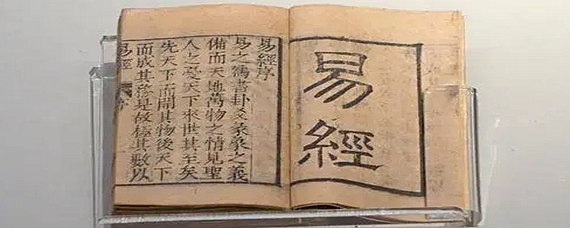 易
經
易經序
易之爲書卦爻彖象之義
備而天地萬物之情見聖
人之憂天下來世其至矣
先天下而開其物後天下
而成其務是故極其數以
易經